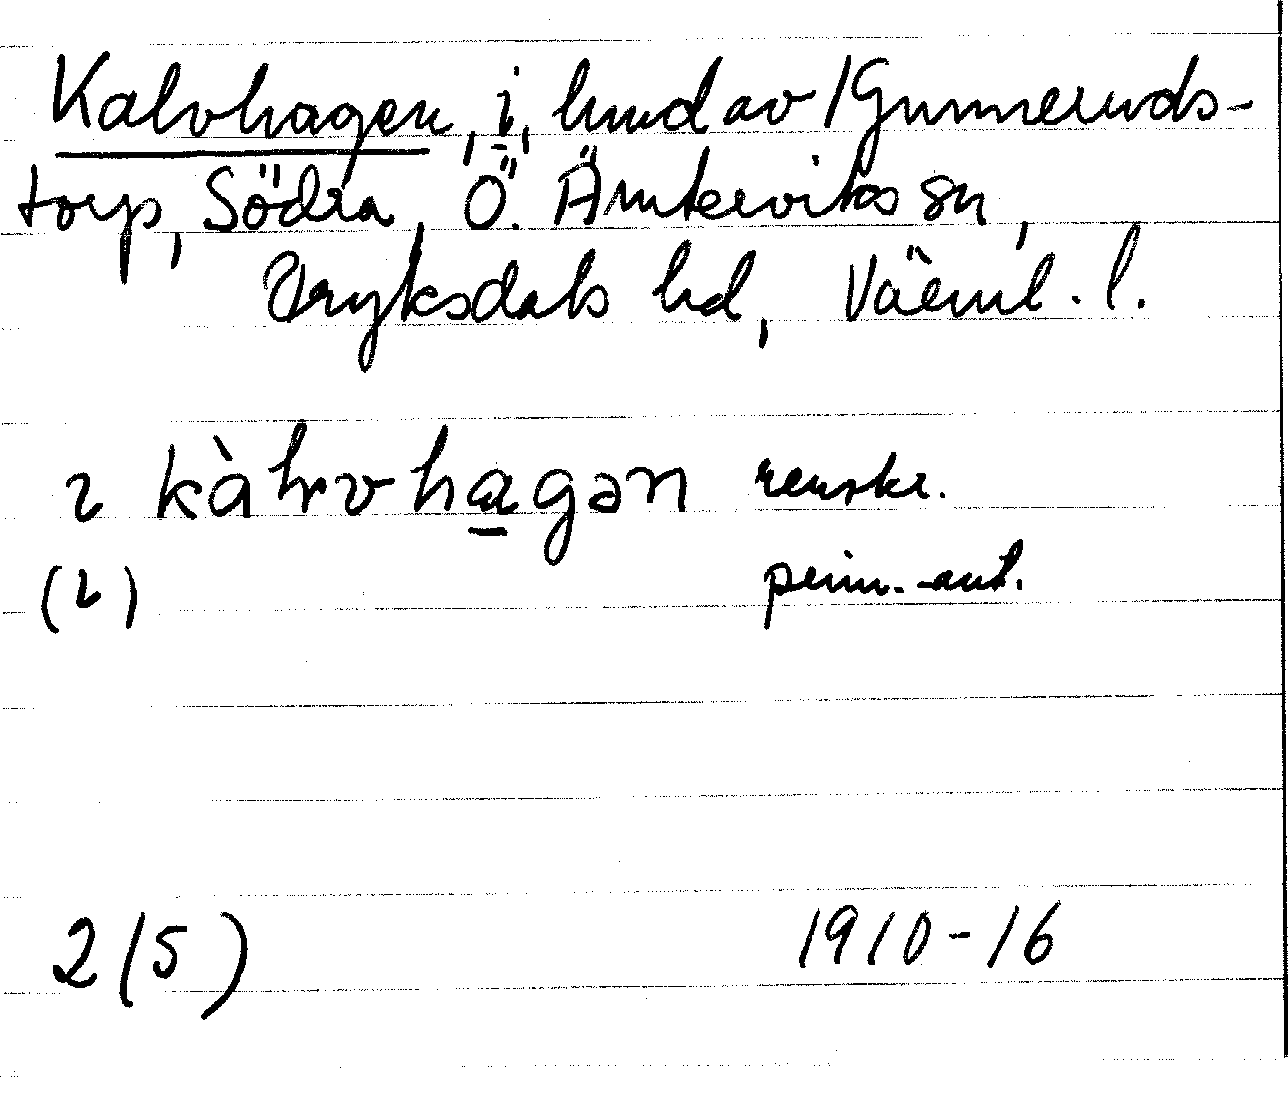 Kalvhagen, i, hmd av /Gunneruds-
torp, Södra, Ö. Ämterviks sn,
Fryksdals hd, Värml. l.
ı kàlvhagən renskr.
(ı) prim.-ant.
2(5) 1910-16